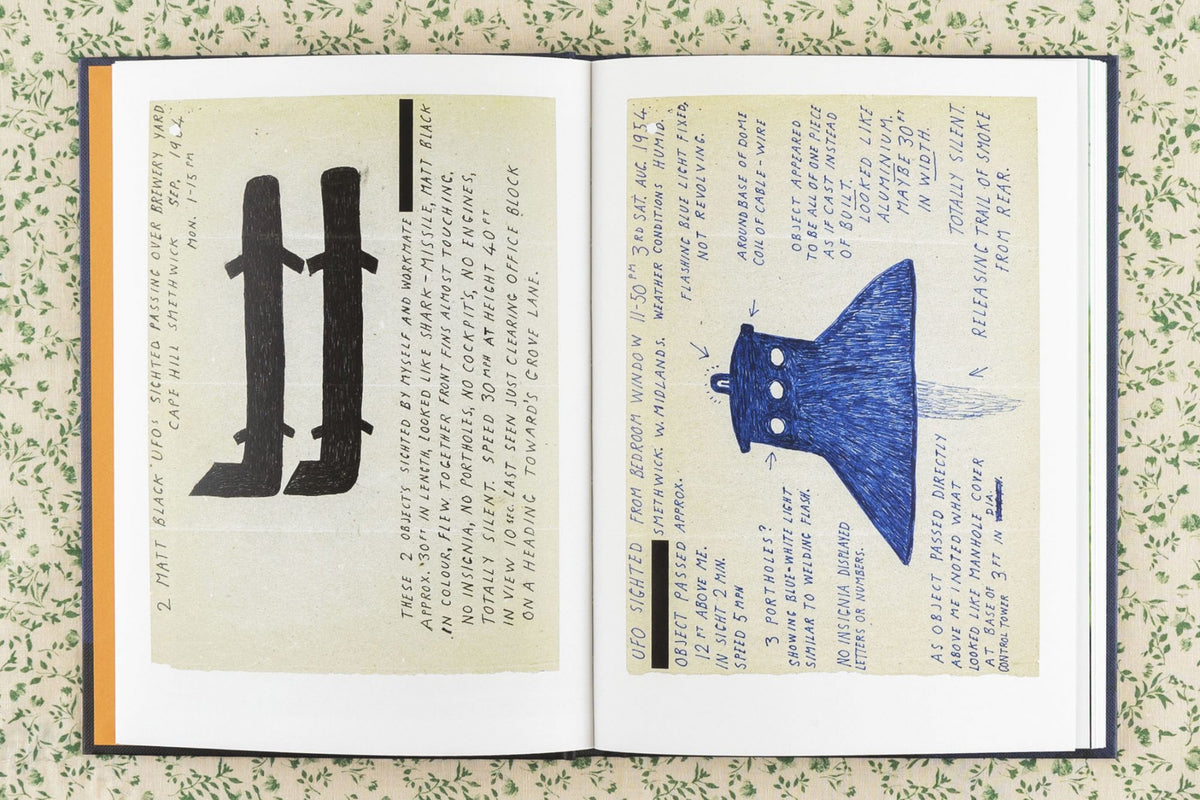 2 MATT BLACK "UFOS" SIGHTED PASSING OVER BREWERY YARD
CAPE HILL SMETHWICK SEP,
MON. 1-15 PM
THESE 2 OBJECTS SIGHTED BY MYSELF AND WORKMATE
APPROX. 30FT IN LENGTH, LOOKED LIKE SHARK-MISSILE, MATT BLACK
IN COLOUR, FLEW TOGETHER FRONT FINS ALMOST TOUCHING,
NO INSIGNIA, NO PORTHOLES, NO COCKPIT'S, NO ENGINES,
TOTALLY SILENT. SPEED 30 MPH AT HEIGHT 40 FT
IN VIEW 10 SEC. LAST SEEN JUST CLEARING OFFICE BLOCK
ON A HEADING TOWARD'S GROVE LANE.
UFO SIGHTED FROM BEDROOM WINDOW 11-50 PM 3RD SAT. AUG. 1954
SMETHWICK W. MIDLANDS. WEATHER CONDITIONS HUMID.
OBJECT PASSED APPROX.
12 FT ABOVE ME.
IN SIGHT 2 MIN.
SPEED 5 MPH
FLASHING BLUE LIGHT FIXED,
NOT REVOLVING.
AROUND BASE OF DOME
COIL OF CABLE-WIRE
3 PORTHOLES?
SHOWING BLUE-WHITE LIGHT
SIMILAR TO WELDING FLASH.
NO INSIGNIA DISPLAYED
LETTERS OR NUMBERS.
OBJECT APPEARED
TO BE ALL OF ONE PIECE
AS IF CAST INSTEAD
OF BUILT.
LOOKED LIKE
ALUMINIUM.
MAYBE 30 FT
IN WIDTH.
TOTALLY SILENT.
RELEASING TRAIL OF SMOKE
FROM REAR.
AS OBJECT PASSED DIRECTLY
ABOVE ME I NOTED WHAT
LOOKED LIKE MANHOLE COVER
AT BASE OF 3 FT IN DIA.
CONTROL TOWER